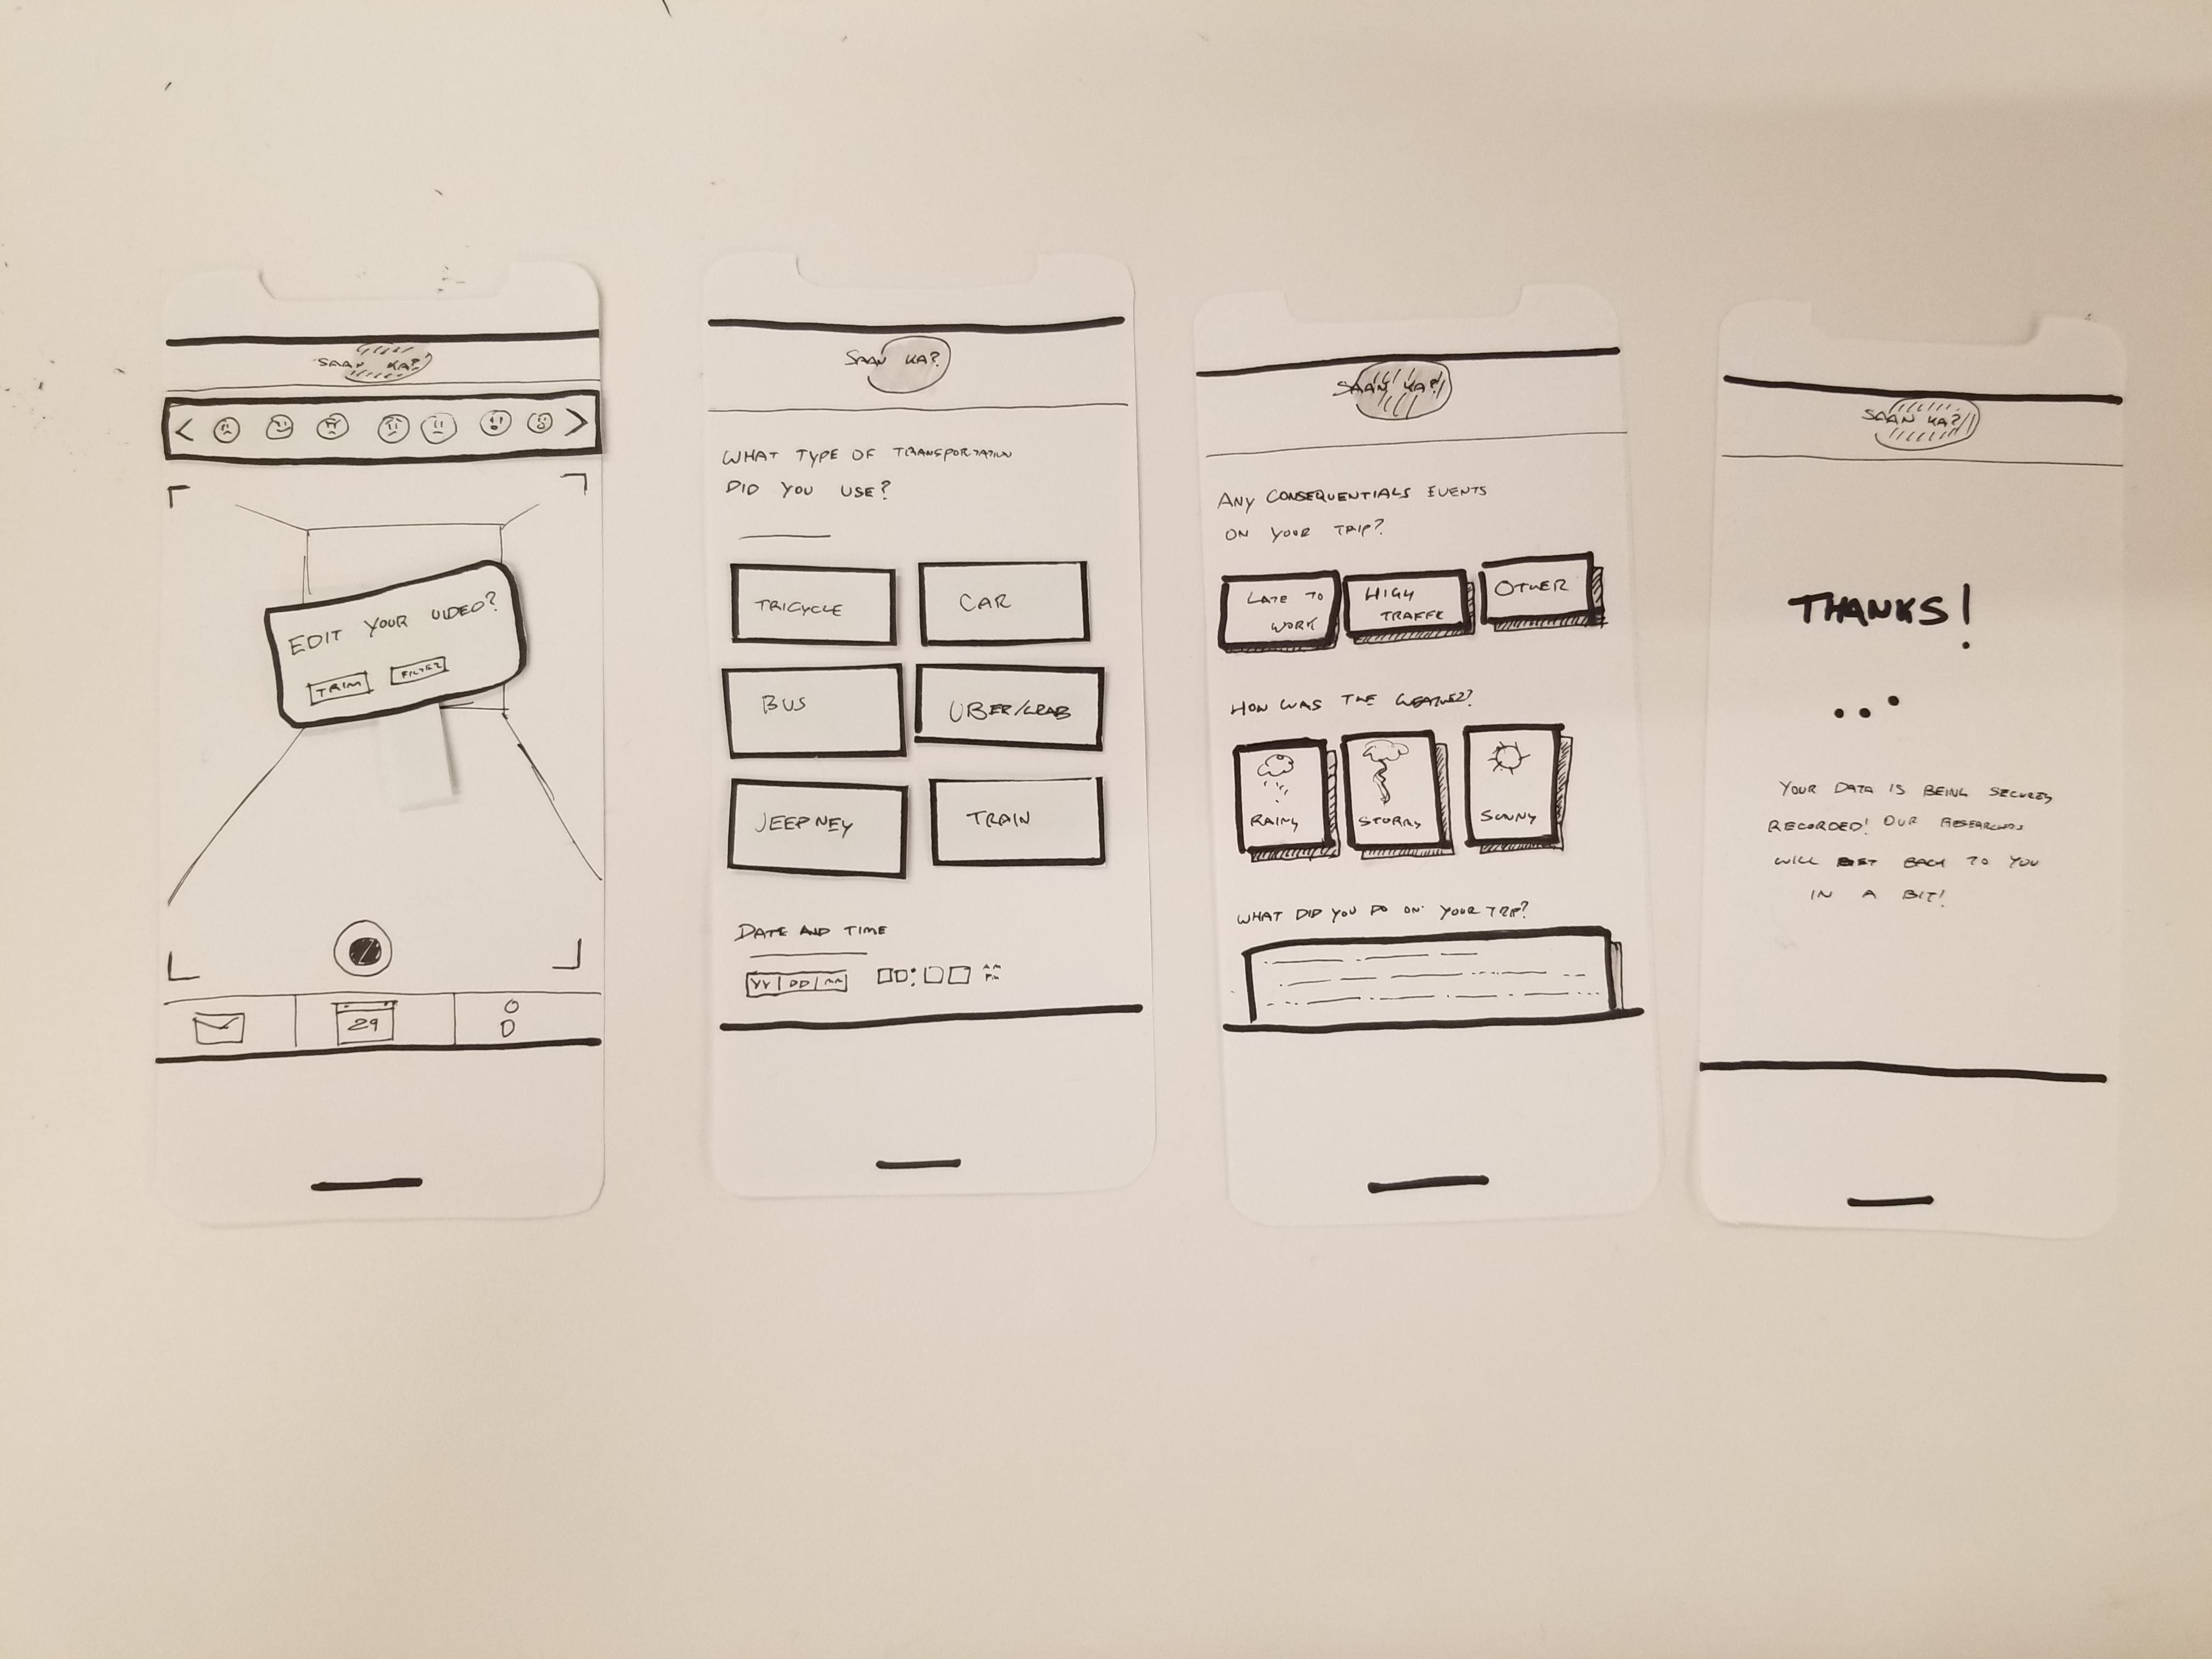 SAAN KA?
EDIT YOUR VIDEO?
TRIM
FILTER
29
SAAN KA?
WHAT TYPE OF TRANSPORTATION
DID YOU USE?
TRICYCLE
CAR
BUS
UBER/GRAB
JEEPNEY
TRAIN
DATE AND TIME
YY DD MM
AM
PM
SAAN KA?
ANY CONSEQUENTIALS EVENTS
ON YOUR TRIP?
LATE TO
WORK
HIGH
TRAFFIC
OTHER
HOW WAS THE WEATHER?
RAINY
STORMY
SUNNY
WHAT DID YOU DO ON YOUR TRIP?
SAAN KA?
THANKS!
YOUR DATA IS BEING
RECORDED! OUR
WILL GET BACK TO YOU
IN A BIT!